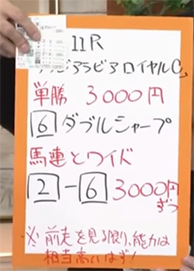 11R
ジアラビアロイヤルC
単勝 3000円
6 ダブルシャープ
馬連とワイド
2-6 3000円
ずつ
※前走を見る限り、能力は
相当高いはず!